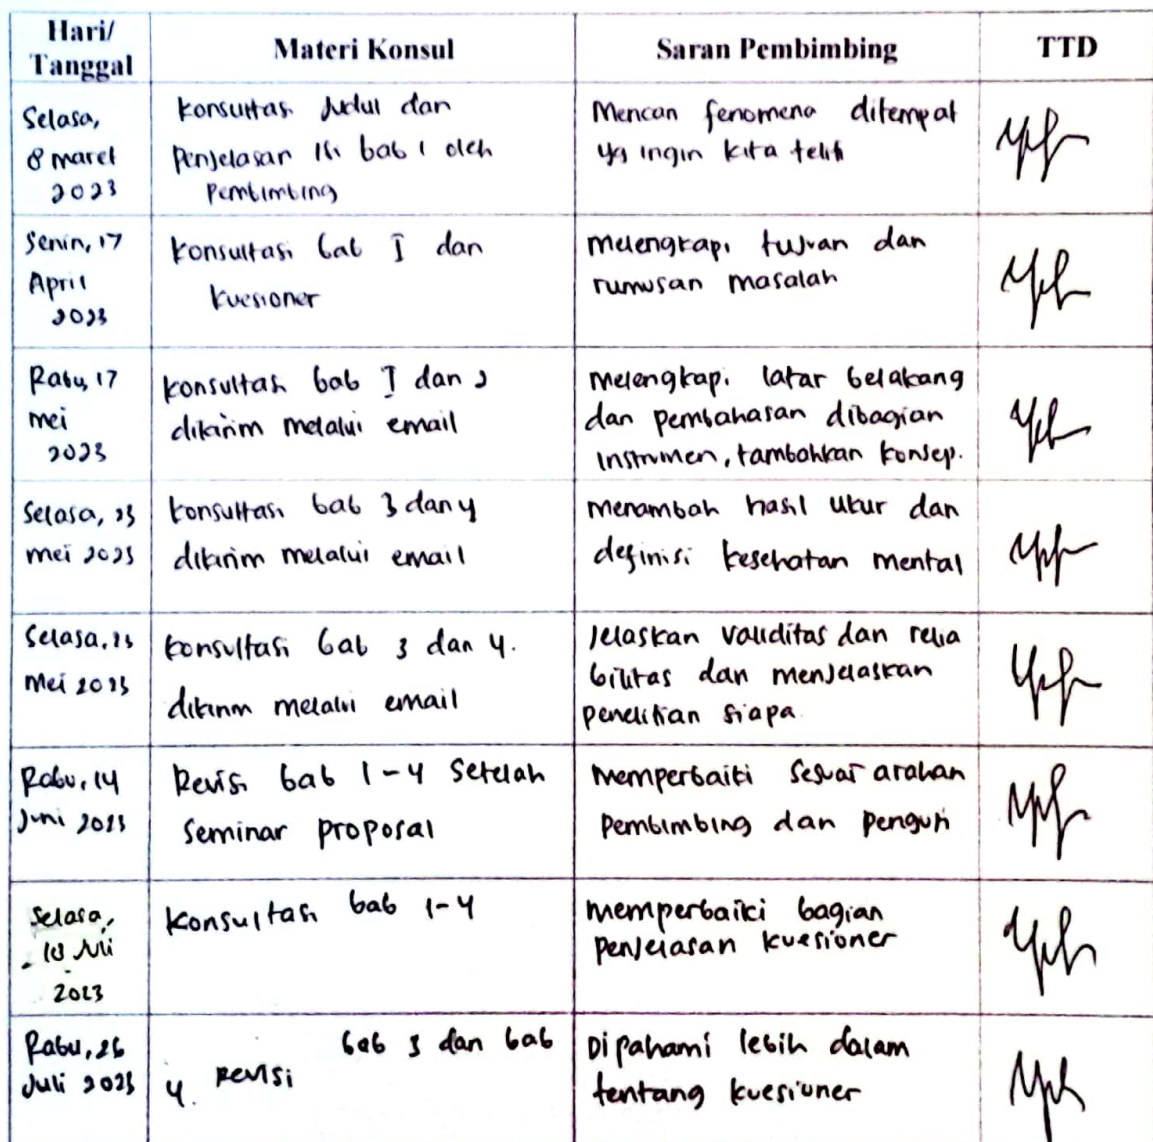 Hari/
Tanggal
Materi Konsul
Saran Pembimbing
TTD
Selasa,
8 maret
2023
Konsultasi Judul dan
Penjelasan isi bab 1 oleh
Pembimbing
Mencari fenomena ditempat
yg ingin kita teliti
Senin, 17
April
2023
Konsultasi bab I dan
Kuesioner
melengkapi tujuan dan
rumusan masalah
Rabu, 17
mei
2023
Konsultasi bab I dan 2
dikirim melalui email
melengkapi latar belakang
dan pembahasan dibagian
instrumen, tambahkan konsep.
Selasa, 23
mei 2023
Konsultasi bab 3 dan 4
dikirim melalui email
menambah hasil ukur dan
definisi kesehatan mental
Selasa, 23
Mei 2023
Konsultasi bab 3 dan 4.
dikirim melalui email
Jelaskan validitas dan relia
bilitas dan menjelaskan
penelitian siapa
Rabu, 14
Juni 2023
Revisi bab 1-4 Setelah
Seminar proposal
memperbaiki sesuai arahan
Pembimbing dan penguji
Selasa,
18 Juli
2023
Konsultasi bab 1-4
memperbaiki bagian
penjelasan kuesioner
Rabu, 26
Juli 2023
bab 3 dan bab
4. Revisi
Dipahami lebih dalam
tentang kuesioner